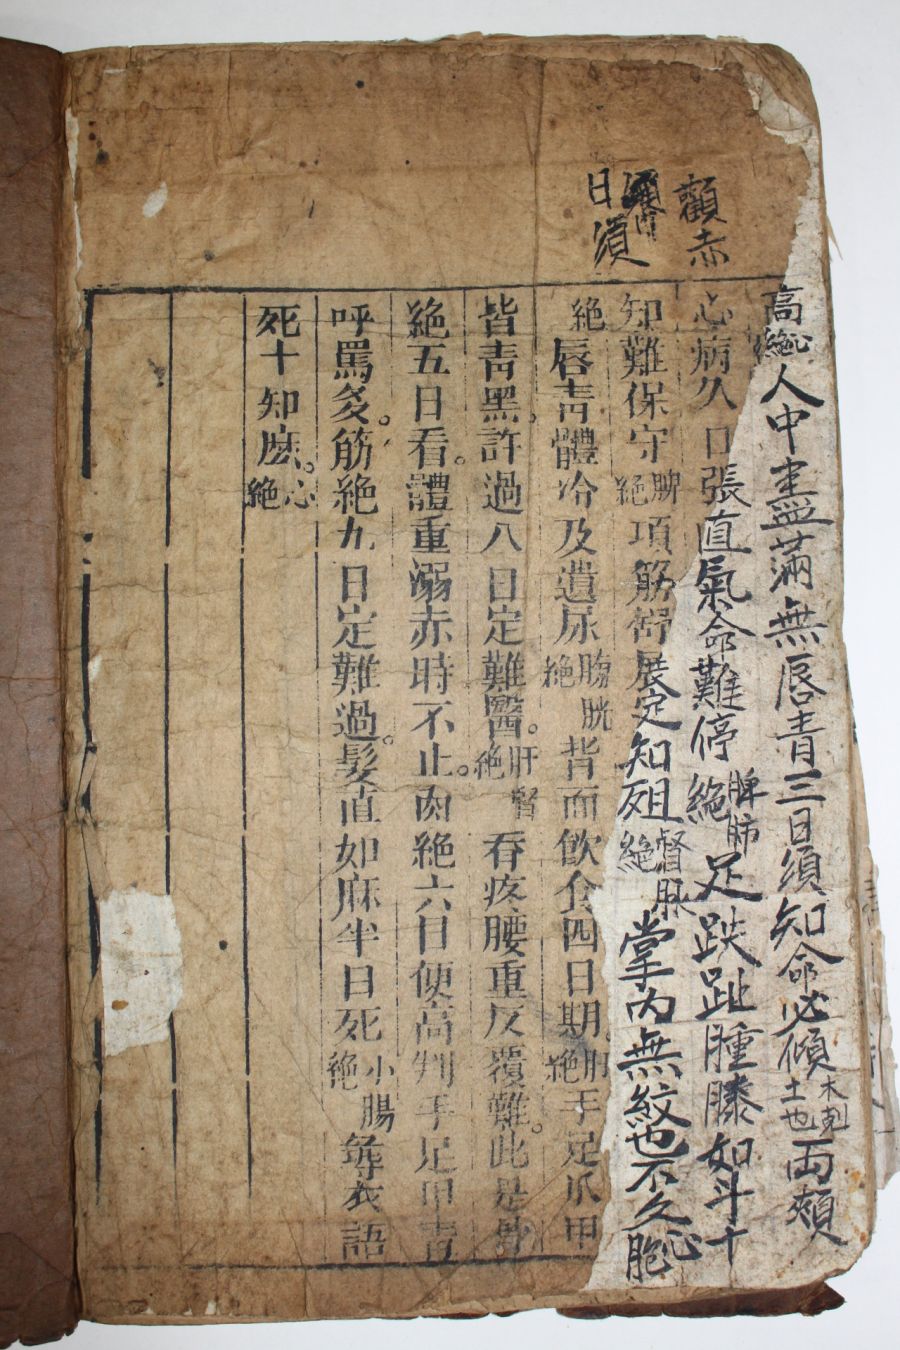 顴赤
醫
日須
高絕心人中盡滿無唇青三日須知命必傾木剋土也兩頰
心病久口張直氣命難停絕脾肺足趺趾腫膝如斗十
知難保守脾絕項筋舒展定知殂督脈絕掌內無紋也不久心胞
絕唇靑體冷及遺尿膀胱絕背面飮食四日期肝絕手足爪甲
皆靑黑許過八日定難醫肝腎絕脊疼腰重反覆難此是骨
絕五日看體重溺赤時不止肉絕六日便高判手足甲靑
呼罵多筋絕九日定難過髮直如麻半日死小腸絕尋衣語
死十知麽心絕